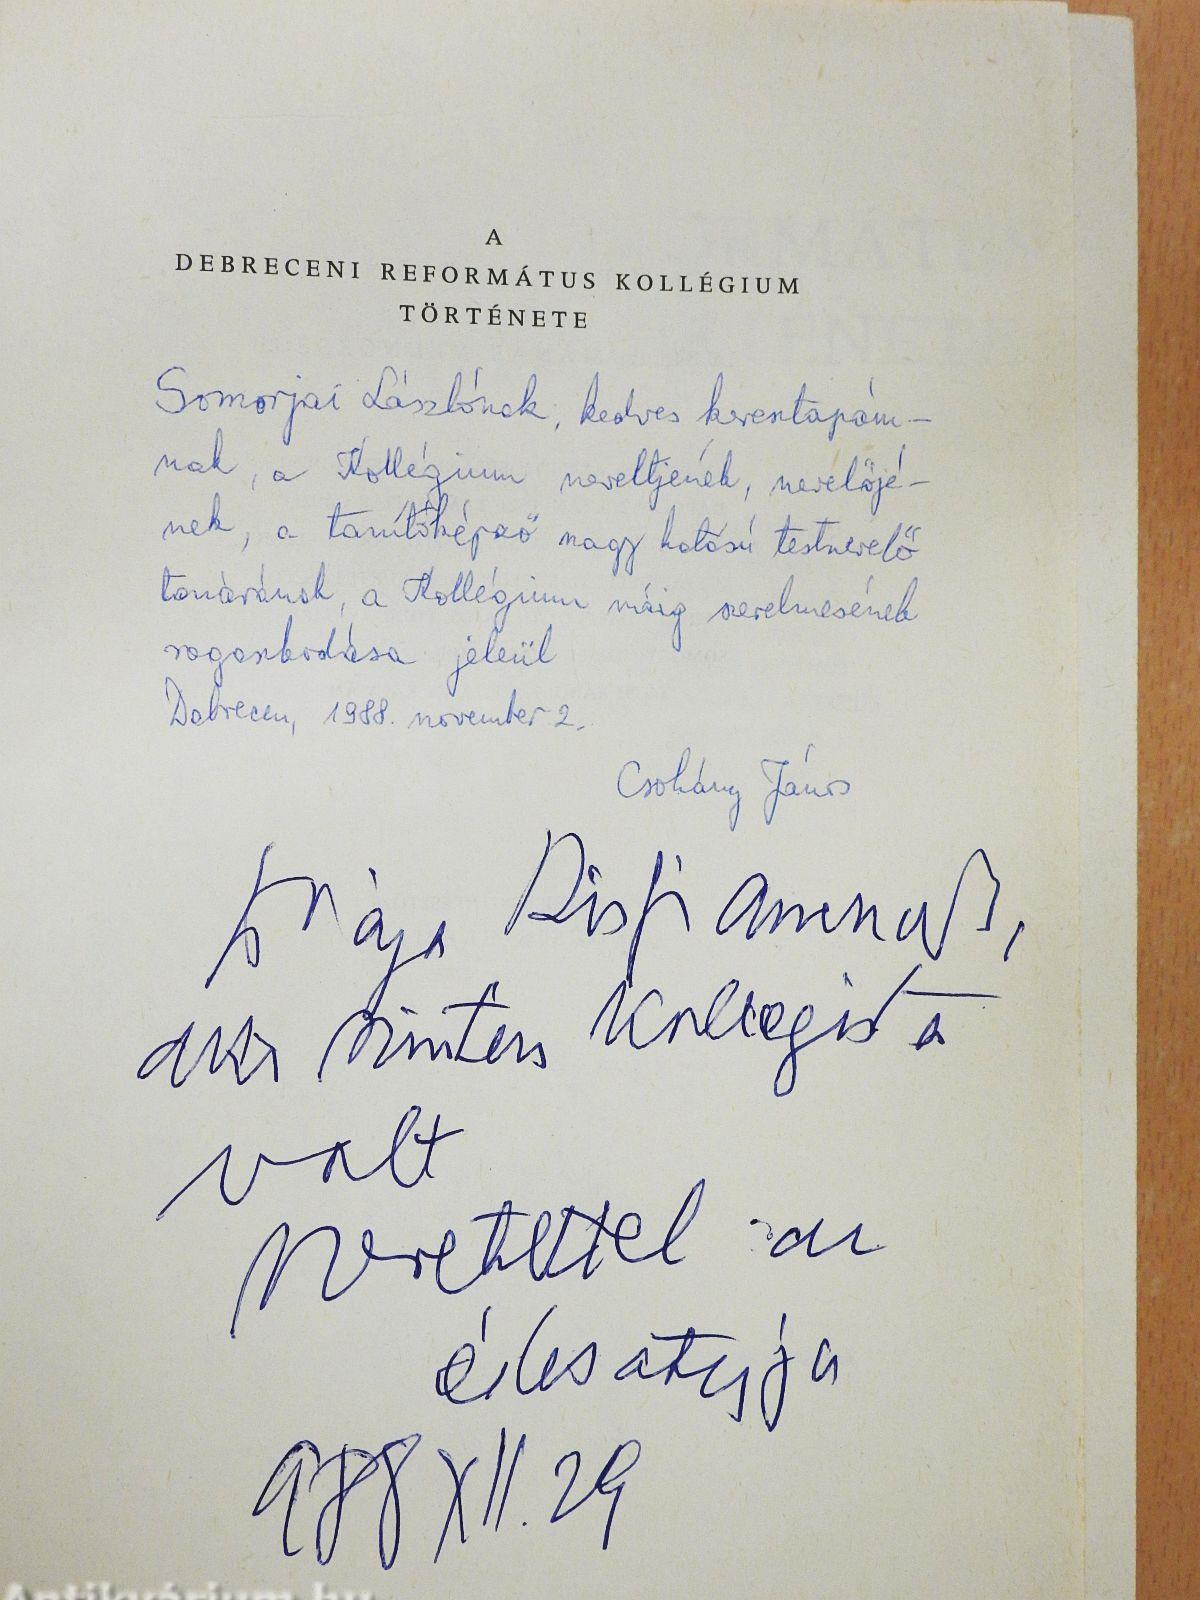 A
DEBRECENI REFORMÁTUS KOLLÉGIUM
TÖRTÉNETE
Somorjai Lászlónak, kedves keresztapám-
nak, a Kollégium neveltjének, nevelőjé-
nek, a tanítóképző nagy hatású testnevelő
tanárának, a Kollégium máig szerelmesének
ragaszkodása jeléül
Debrecen, 1988. november 2.
Csohány János
Drága Annának,
aki szintén Kollegista
volt
szeretettel az
édesatyja
988 XII. 29
Antikvárium.hu